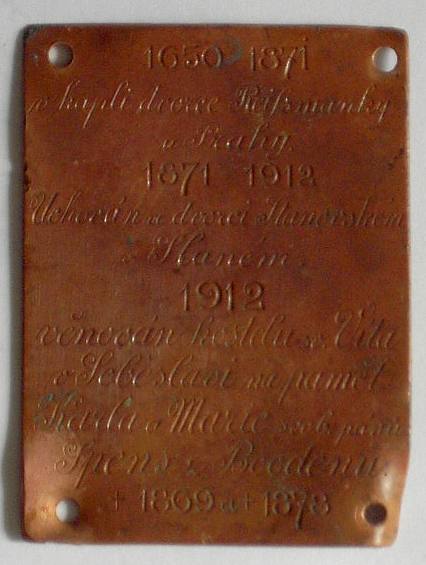 1650 1871
v kapli dvorce Reismanky
u Prahy.
1871 1912
Uchován ve dvorci
v Slaném.
1912
věnován kostelu sv. Víta
v Soběslavi na pamět
Karla a Marie svob. pánů
Spens z Boodenu.
† 1869 a † 1878